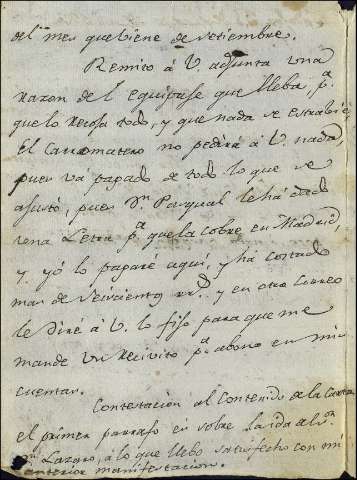 del mes que viene de setiembre.
Remito á V. adjunta una
razon del equipase que lleba, pa.
que lo recosa todo, y que nada se estrabie,
el Carromatero no pedirá á V. nada,
pues va pagado de todo lo que se
ajustó, pues Dn. Pasqual le há dado
una Letra pa. que la cobre en Madrid,
y yó lo pagaré aqui, y há costado
mas de seiscientos rrs. y en otro correo
le diré á V. lo fijo para que me
mande un recivito pa. abono en mis
cuentas.
Contestacion al Contenido de la Carta,
el primer parrafo es sobre la ida al Sr.
Dn. Lazaro, á lo que llebo satisfecho con mi
anterior manifestacion.